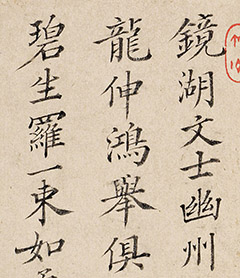 鏡湖文士幽州
龍伸鴻舉俱
碧生羅一束如